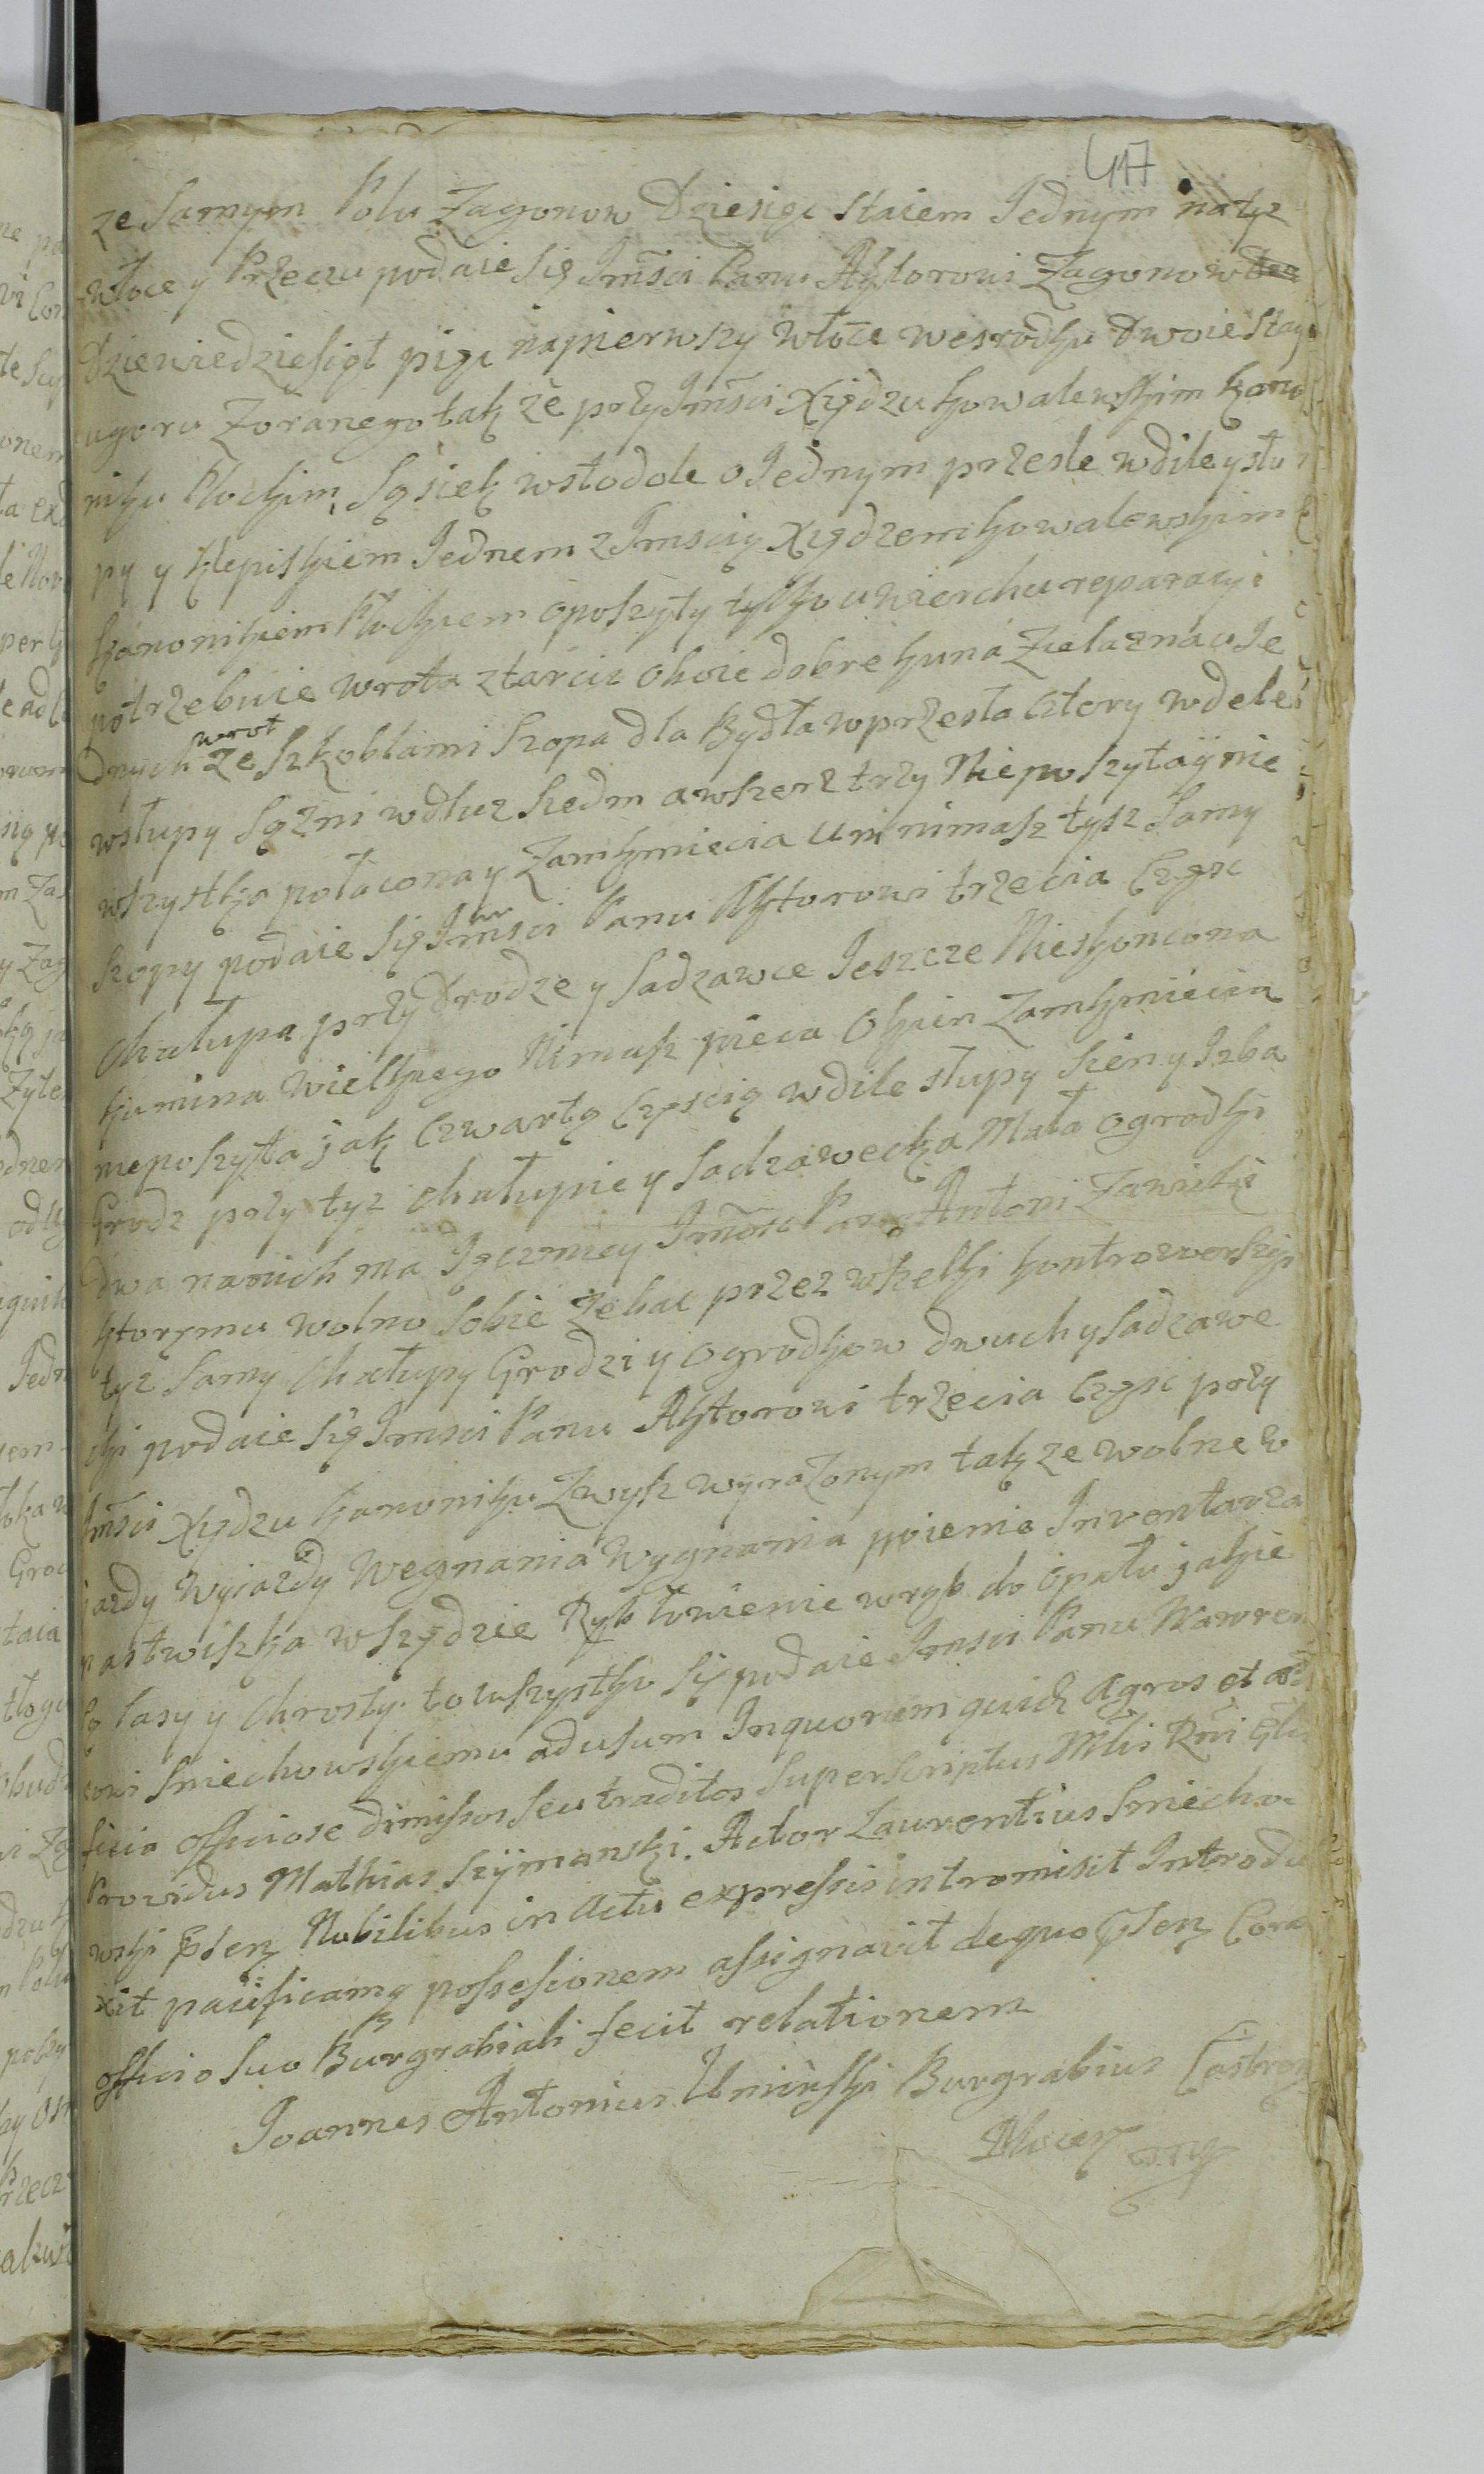 417
ze Samym Polu Zagonow Dziesięc staiem Jednym natyz
włoce y Przeczu podaie się Jmsci Panu Aktorowi Zagonow
Dziewiedziesiąt pięc napierwszy włoce wesrodku dwoie stay
ugoru Zoranego tak że przy Jmsci Xiędzu Kowalewskim Kano
niku Płockim, Sąsiek wstodole o Jednym przesle wdile y słu
py y klepiskiem Jednem z Jmscią Xiędzem Kowalewskim
Kanonikiem Płockiem oposzyty tylko u wierchu reparacyi
potrzebuie wrota ztarcic oboie dobre huna Zielazna u Je
dnych wrot ze szkoblami Szopa dla Bydła w przesła cztery wdele
wsłupy Sązni wdłuz Siedm a wszerz trzy Nie poszyta y nie
wszystka połacona y Zamkniecia um nimasz tysz Samy
Szopy podaie się Jmsci Panu Aktorowi trzecia Częsc
Chałupa przy Drodze y Sadzawce Jeszcze Nieskonczona
kumina wielkiego Nimasz pieca Okien Zamkniecia
nieposzyta jak Czwartą Częscią wdile słupy Sien y Izba
Grodz przy tyz chałupie y Sadzawecka Mała ogrodki
dwa na nich ma Jęczmiey Jmosc Pan Antoni Zawidzki
ktorymu wolno sobie Zebrac przez wszelki kontrowersyi
tyz Samy Chałupy Grodzi y Ogrodkow dwuch y Sadzawe
cki podaie się Jmsci Panu Aktorowi trzecia Częsc przy
Jmsci Xiędzu Kanoniku Zwysz wyrazonym tak ze wolne w
jazdy wyiazdy Wegnania Wygnania poienie Inventarza
pastwiska wszędzie Ryb łowienie wręb do opału jakie
są lasy y Chrosty to wszystko się podaie Jmsci Panu Wawren
cowi Smiechowskiemu ad usum Inquorum quidẽ Agros et ædi
ficia officiose dimissos seu traditos Superscriptus Mtis Rni Glis
Providus Mathias Szymanski. Actor Laurentius Smiecho-
wski psenẓ Nobilibus in Actu expressis intromisit Introdu
xit pacificamq possesionem assignavit de quo psenẓ Cora
officio suo Burgrabiali fecit relationem
Joannes Antonius Uminski Burgrabius Castren
Plocen mp